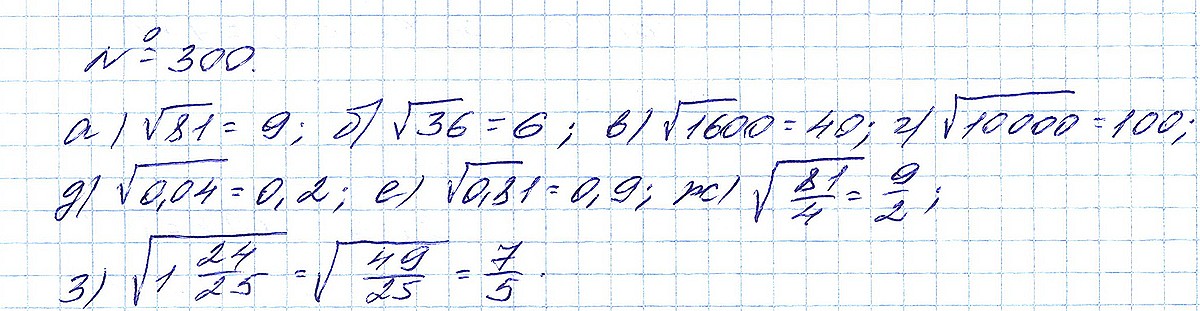 № 300.
а) √81 = 9; б) √36 = 6; в) √1600 = 40; г) √10000 = 100;
д) √0,04 = 0,2; е) √0,81 = 0,9; ж) √81/4 = 9/2;
з) √1 24/25 = √49/25 = 7/5.